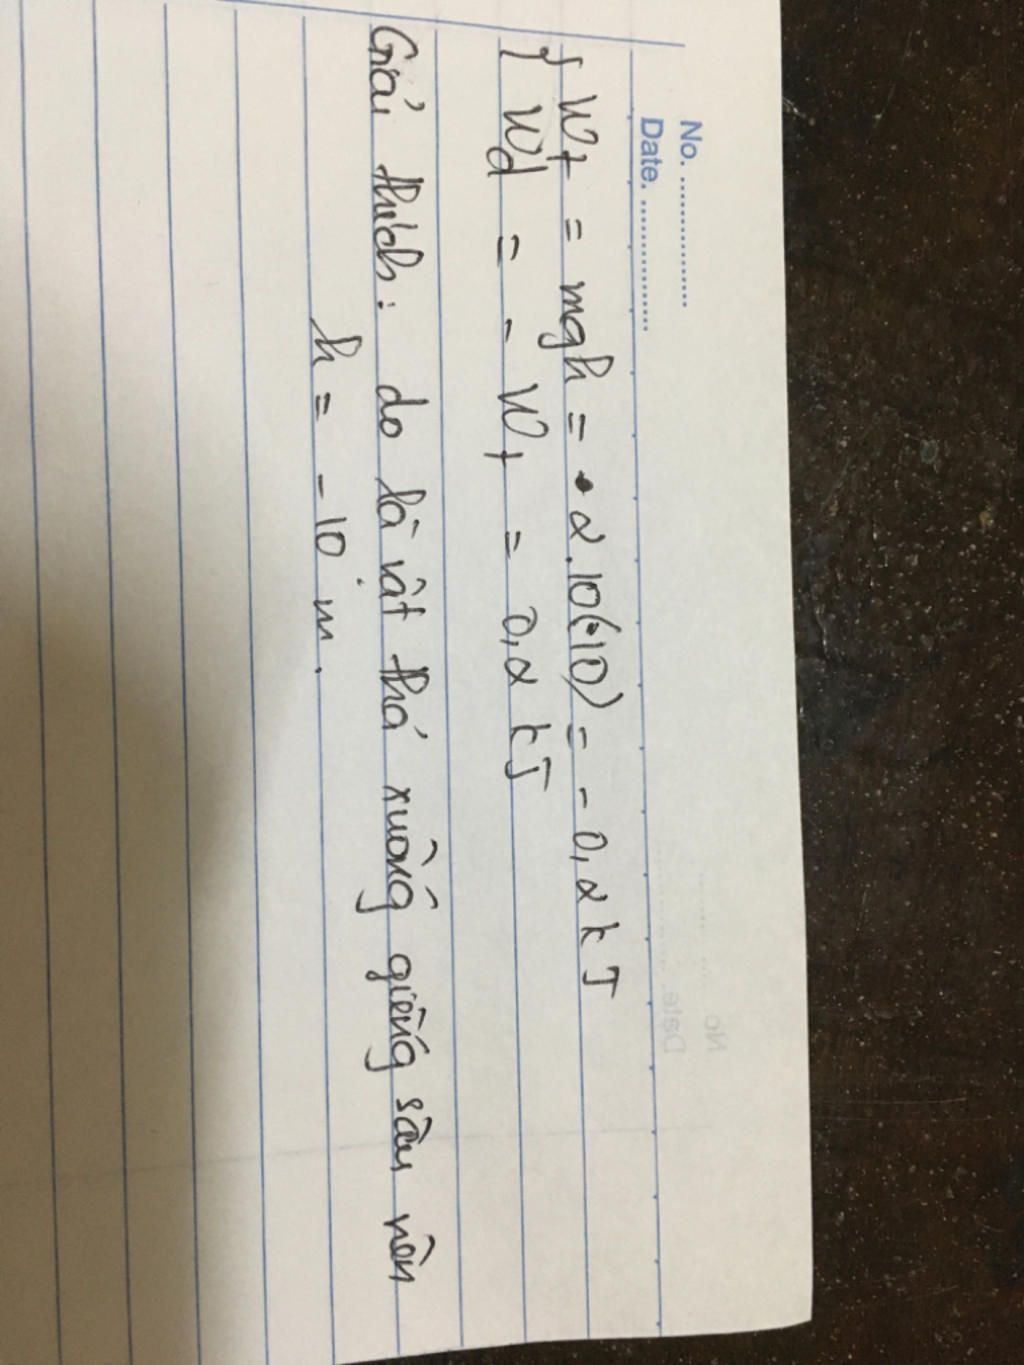 No. ................
Date. ................
{ Wt = mgh = 2.10(-10) = - 0,2 kJ
Wd = - Wt = 0,2 kJ
Giải thích : do là vật thả xuống giếng sâu nên
h = - 10 m.